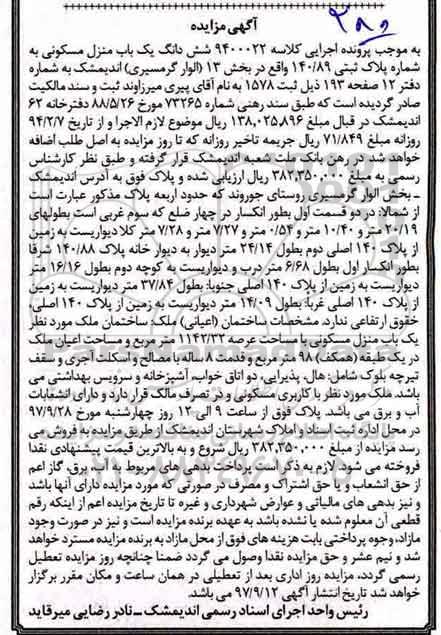 آگهی مزایده
به موجب پرونده اجرایی کلاسه ۹۴۰۰۰۲۲ شش دانگ یک باب منزل مسکونی به
شماره پلاک ثبتی ۱۴۰/۸۹ واقع در بخش ۱۳ (الوار گرمسیری) اندیمشک به شماره
دفتر ۱۲ صفحه ۱۹۳ ذیل ثبت ۱۵۷۸ به نام آقای پیری میرزاوند ثبت و سند مالکیت
صادر گردیده است که طبق سند رهنی شماره ۷۳۲۶۵ مورخ ۸۸/۵/۲۶ دفترخانه ۶۲
اندیمشک در قبال مبلغ ۱۳۸,۰۲۵,۸۹۶ ریال موضوع لازم الاجرا و از تاریخ ۹۴/۲/۷
روزانه مبلغ ۷۱/۸۴۹ ریال جریمه تاخیر روزانه که تا روز مزایده به اصل طلب اضافه
خواهد شد در رهن بانک ملت شعبه اندیمشک قرار گرفته و طبق نظر کارشناس
رسمی به مبلغ ۳۸۲,۳۵۰,۰۰۰ ریال ارزیابی شده و پلاک فوق به آدرس اندیمشک
ـ بخش الوار گرمسیری روستای جوروند که حدود اربعه پلاک مذکور عبارت است
از شمالا: در دو قسمت اول بطور انکسار در چهار ضلع که سوم غربی است بطولهای
۲۰/۱۹ متر و ۱۰/۴۰ متر و ۰/۵۴ متر و ۷/۲۷ متر و ۷/۲۸ متر کلا دیواریست به زمین
از پلاک ۱۴۰ اصلی دوم بطول ۲۴/۱۴ متر دیوار به دیوار خانه پلاک ۱۴۰/۸۸ شرقا
بطور انکسار اول بطول ۶/۶۸ متر درب و دیواریست به کوچه دوم بطول ۱۶/۱۶ متر
دیواریست به زمین از پلاک ۱۴۰ اصلی جنوبا: بطول ۳۷/۸۴ متر دیواریست به زمین
از پلاک ۱۴۰ اصلی غربا: بطول ۱۴/۰۹ متر دیواریست به زمین از پلاک ۱۴۰ اصلی،
حقوق ارتفاعی ندارد. مشخصات ساختمان (اعیانی) ملک: ساختمان ملک مورد نظر
یک باب منزل مسکونی با مساحت عرصه ۱۱۴۲/۳۲ متر مربع و مساحت اعیان ملک
در یک طبقه (همکف) ۹۸ متر مربع و قدمت ۸ ساله با مصالح و اسکلت آجری و سقف
تیرچه بلوک شامل: هال، پذیرایی، دو اتاق خواب، آشپزخانه و سرویس بهداشتی می
باشد. ملک مورد نظر با کاربری مسکونی و در تصرف مالک قرار دارد و دارای انشعابات
آب و برق می باشد. پلاک فوق از ساعت ۹ الی ۱۲ روز چهارشنبه مورخ ۹۷/۹/۲۸
در محل اداره ثبت اسناد و املاک شهرستان اندیمشک از طریق مزایده به فروش می
رسد مزایده از مبلغ ۳۸۲,۳۵۰,۰۰۰ ریال شروع و به بالاترین قیمت پیشنهادی نقدا
فروخته می شود. لازم به ذکر است پرداخت بدهی های مربوط به آب، برق، گاز اعم
از حق انشعاب و یا حق اشتراک و مصرف در صورتی که مورد مزایده دارای آنها باشد
و نیز بدهی های مالیاتی و عوارض شهرداری و غیره تا تاریخ مزایده اعم از اینکه رقم
قطعی آن معلوم شده یا نشده باشد به عهده برنده مزایده است و نیز در صورت وجود
مازاد، وجوه پرداختی بابت هزینه های فوق از محل مازاد به برنده مزایده مسترد خواهد
شد و نیم عشر و حق مزایده نقدا وصول می گردد ضمنا چنانچه روز مزایده تعطیل
رسمی گردد، مزایده روز اداری بعد از تعطیلی در همان ساعت و مکان مقرر برگزار
خواهد شد تاریخ انتشار آگهی ۹۷/۹/۱۲ می باشد.
رئیس واحد اجرای اسناد رسمی اندیمشک ــ نادر رضایی میرقاید